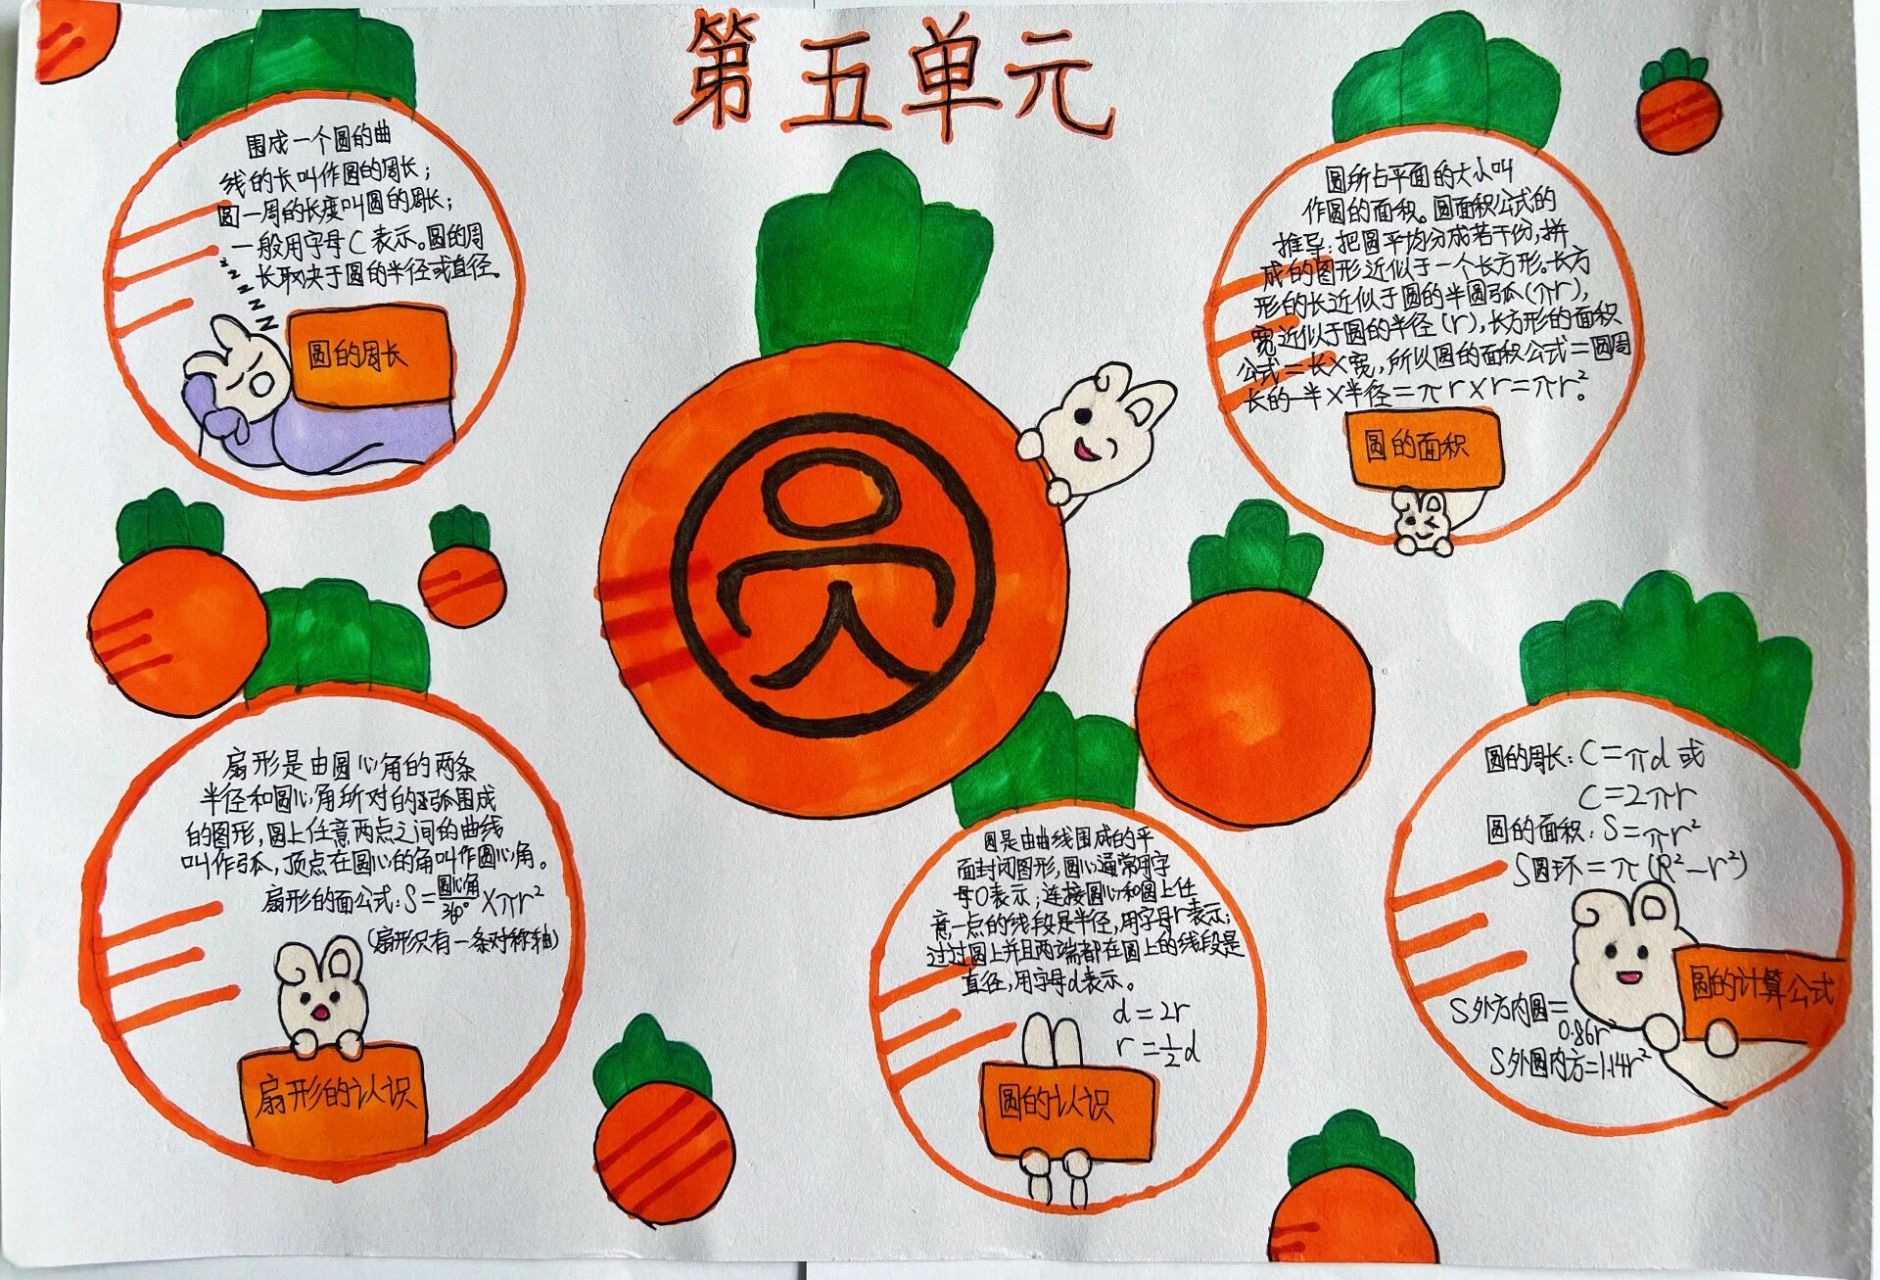 第五单元
围成一个圆的曲
线的长叫作圆的周长；
圆一周的长度叫圆的周长；
一般用字母C表示。圆的周
长取决于圆的半径或直径。
zzzzzz
圆的周长
圆所占平面的大小叫
作圆的面积。圆面积公式的
推导：把圆平均分成若干份，拼
成的图形近似于一个长方形。长方
形的长近似于圆的半圆弧(πr),
宽近似于圆的半径(r),长方形的面积
公式=长×宽,所以圆的面积公式=圆周
长的一半×半径=πr×r=πr²。
圆的面积
圆
扇形是由圆心角的两条
半径和圆心角所对的弧围成
的图形,圆上任意两点之间的曲线
叫作弧,顶点在圆心的角叫作圆心角。
扇形的面公式:S=圆心角/360°×πr²
(扇形只有一条对称轴)
扇形的认识
圆是由曲线围成的平
面封闭图形,圆心通常用字
母O表示;连接圆心和圆上任
意一点的线段是半径,用字母r表示;
过过圆上并且两端都在圆上的线段是
直径,用字母d表示。
d=2r
r=½d
圆的认识
圆的周长:C=πd或
C=2πr
圆的面积:S=πr²
S圆环=π(R²-r²)
圆的计算公式
S外方内圆=
0.86r²
S外圆内方=1.14r²